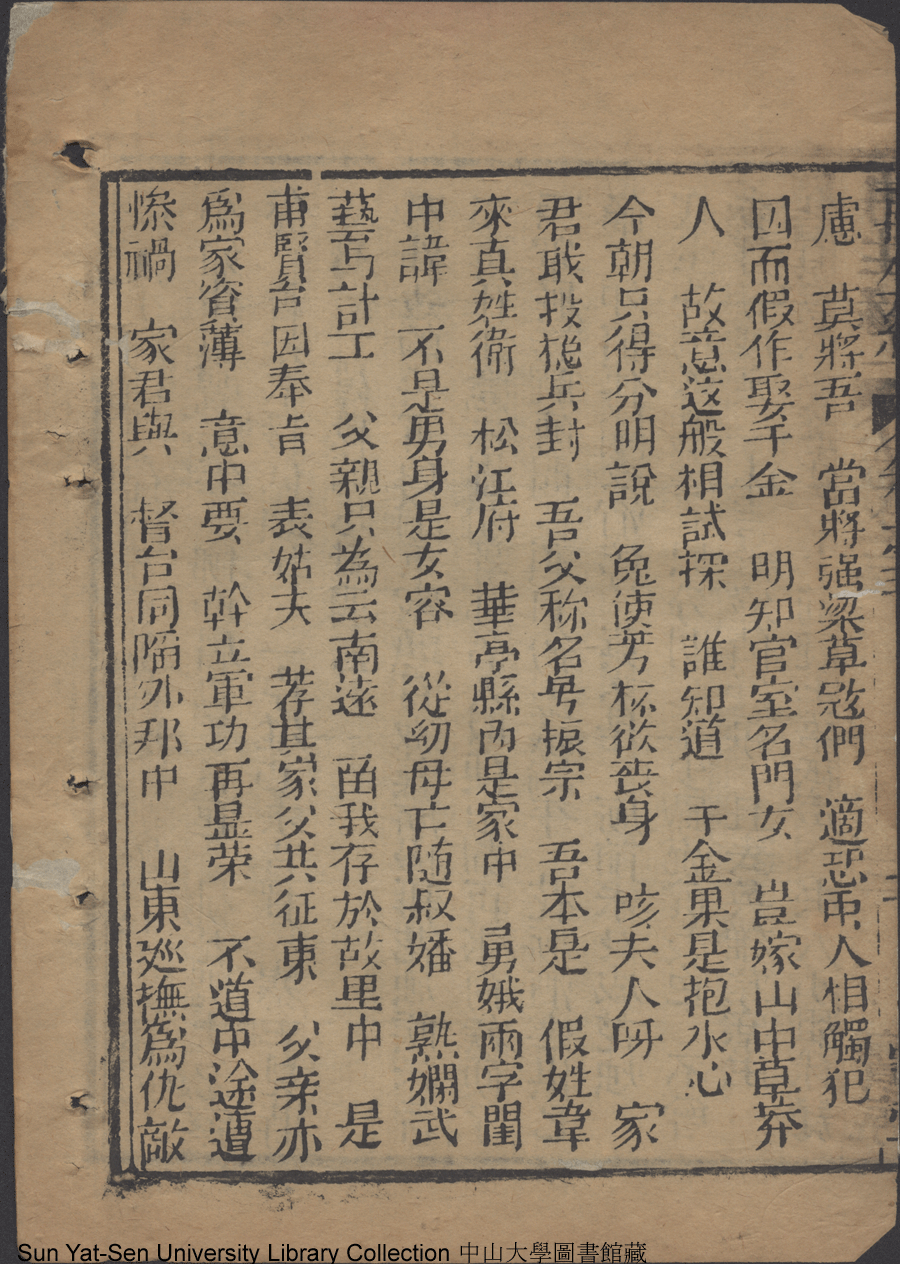 慮 莫將吾 當將强梁草㓂們 適恐中人相觸犯
因而假作娶千金 明知官室名門女 豈嫁山中草莽
人 故意这般相試探 誰知道 千金果是抱氷心
今朝只得分明說 免使芳杯欲丧身 咳夫人呀 家
君耿投總兵封 吾父称名号振宗 吾本是 假姓韋
來真姓衛 松江府 華亭縣内是家中 勇娥兩字閨
中諱 不是男身是女容 從幼母亡随叔嬸 熟嫻武
藝与計工 父親只為云南遠 畱我存於故里中 是
甫賢台因奉旨 表姑夫 荐其家父共征東 父亲亦
為家資薄 意中要 幹立軍功再显荣 不道中途遭
惨禍 家君與 督台同陷外邦中 山東廵撫為仇敵
Sun Yat-Sen University Library Collection 中山大學圖書館藏